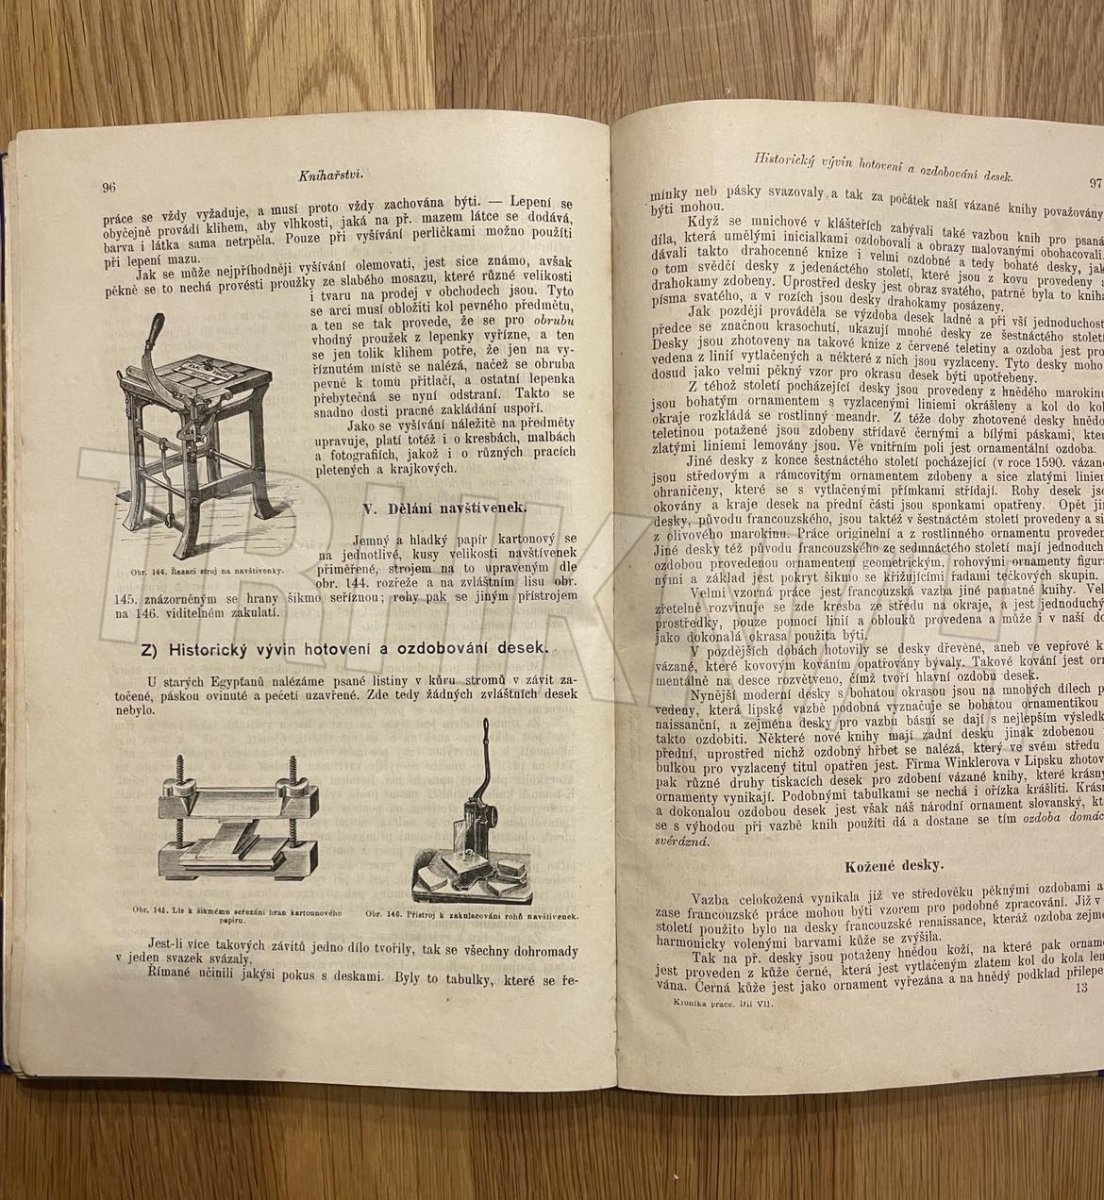 96
Knihařství.
práce se vždy vyžaduje, a musí proto vždy zachována býti. — Lepení se
obyčejně provádí klihem, aby vlhkosti, jaká na př. mazem látce se dodává,
barva i látka sama netrpěla. Pouze při vyšívání perličkami možno použíti
při lepení mazu.
Jak se může nejpříhodněji vyšívání olemovati, jest sice známo, avšak
pěkně se to nechá provésti proužky ze slabého mosazu, které různé velikosti
i tvaru na prodej v obchodech jsou. Tyto
se arci musí obložiti kol pevného předmětu,
a ten se tak provede, že se pro obrubu
vhodný proužek z lepenky vyřízne, a ten
se jen tolik klihem potře, že jen na vy-
říznutém místě se nalézá, načež se obruba
pevně k tomu přitlačí, a ostatní lepenka
přebytečná se nyní odstraní. Takto se
snadno dosti pracné zakládání uspoří.
Jako se vyšívání náležitě na předměty
upravuje, platí totéž i o kresbách, malbách
a fotografiích, jakož i o různých pracích
pletených a krajkových.
V. Dělání navštívenek.
Jemný a hladký papír kartonový se
na jednotlivé, kusy velikosti navštívenek
přiměřené, strojem na to upraveným dle
obr. 144. rozřeže a na zvláštním lisu obr.
Obr. 144. Řezací stroj na navštívenky.
145. znázorněným se hrany šikmo seříznou; rohy pak se jiným přístrojem
na 146. viditelném zakulatí.
Z) Historický vývin hotovení a ozdobování desek.
U starých Egypťanů nalézáme psané listiny v kůru stromů v závit za-
točené, páskou ovinuté a pečetí uzavřené. Zde tedy žádných zvláštních desek
nebylo.
Obr. 145. Lis k šikmému seřezání hran kartounového
papíru.
Obr. 146. Přístroj k zakulacování rohů navštívenek.
Jest-li více takových závitů jedno dílo tvořily, tak se všechny dohromady
v jeden svazek svázaly.
Římané učinili jakýsi pokus s deskami. Byly to tabulky, které se ře-
Historický vývin hotovení a ozdobování desek.
97
mínky neb pásky svazovaly a tak za počátek naší vázané knihy považovány
býti mohou.
Když se mnichové v klášteřích zabývali také vazbou knih pro psaná
díla, která umělými inicialkami ozdobovali a obrazy malovanými obohacovali,
dávali takto drahocenné knize i velmi ozdobné a tedy bohaté desky, jak
o tom svědčí desky z jedenáctého století, které jsou z kovu provedeny a
drahokamy zdobeny. Uprostřed desky jest obraz svatého, patrně byla to kniha
písma svatého, a v rozích jsou desky drahokamy posázeny.
Jak později prováděla se výzdoba desek ladně a při vší jednoduchosti
předce se značnou krasochutí, ukazují mnohé desky ze šestnáctého století.
Desky jsou zhotoveny na takové knize z červené teletiny a ozdoba jest pro-
vedena z linií vytlačených a některé z nich jsou vyzlaceny. Tyto desky moho
dosud jako velmi pěkný vzor pro okrasu desek býti upotřebeny.
Z téhož století pocházející desky jsou provedeny z hnědého marokinu
jsou bohatým ornamentem s vyzlacenými liniemi okrášleny a kol do kola
okraje rozkládá se rostlinný meandr. Z téže doby zhotovené desky hnědo
teletinou potažené jsou zdobeny střídavě černými a bílými páskami, kter
zlatými liniemi lemovány jsou. Ve vnitřním poli jest ornamentální ozdoba.
Jiné desky z konce šestnáctého století pocházející (v roce 1590. vázané
jsou středovým a rámcovitým ornamentem zdobeny a sice zlatými liniem
ohraničeny, které se s vytlačenými přímkami střídají. Rohy desek jso
okovány a kraje desek na přední části jsou sponkami opatřeny. Opět jin
desky, původu francouzského, jsou taktéž v šestnáctém století provedeny a si
z olivového marokinu. Práce originelní a z rostlinného ornamentu proveden
Jiné desky též původu francouzského ze sedmnáctého století mají jednoduch
ozdobou provedenou ornamentem geometrickým, rohovými ornamenty figura
nými a základ jest pokryt šikmo se křižujícími řadami tečkových skupin.
Velmi vzorná práce jest francouzská vazba jiné památné knihy. Vel
zřetelně rozvinuje se zde kresba ze středu na okraje, a jest jednoduchý
prostředky, pouze pomocí linií a oblouků provedena a může i v naší do
jako dokonalá okrasa použita býti.
V pozdějších dobách hotovily se desky dřevěné, aneb ve vepřové k
vázané, které kovovým kováním opatřovány bývaly. Takové kování jest orn
mentálně na desce rozvětveno, čímž tvoří hlavní ozdobu desek.
Nynější moderní desky s bohatou okrasou jsou na mnohých dílech p
vedeny, která lipské vazbě podobná vyznačuje se bohatou ornamentikou
naissanční, a zejména desky pro vazbu básní se dají s nejlepším výsledk
takto ozdobiti. Některé nové knihy mají zadní desku jinak zdobenou
přední, uprostřed nichž ozdobný hřbet se nalézá, který ve svém středu
bulkou pro vyzlacený titul opatřen jest. Firma Winklerova v Lipsku zhotov
pak různé druhy tiskacích desek pro zdobení vázané knihy, které krásný
ornamenty vynikají. Podobnými tabulkami se nechá i ořízka krášliti. Krásn
a dokonalou ozdobou desek jest však náš národní ornament slovanský, kt
se s výhodou při vazbě knih použíti dá a dostane se tím ozdoba domác
svérázná.
Kožené desky.
Vazba celokožená vynikala již ve středověku pěknými ozdobami a
zase francouzské práce mohou býti vzorem pro podobné zpracování. Již v
století použito bylo na desky francouzské renaissance, kteráž ozdoba zejmé
harmonicky volenými barvami kůže se zvýšila.
Tak na př. desky jsou potaženy hnědou koží, na které pak orname
jest proveden z kůže černé, která jest vytlačeným zlatem kol do kola lem
vána. Černá kůže jest jako ornament vyřezána a na hnědý podklad přilepe
Kronika práce. Díl VII.
13
TRHKNIH